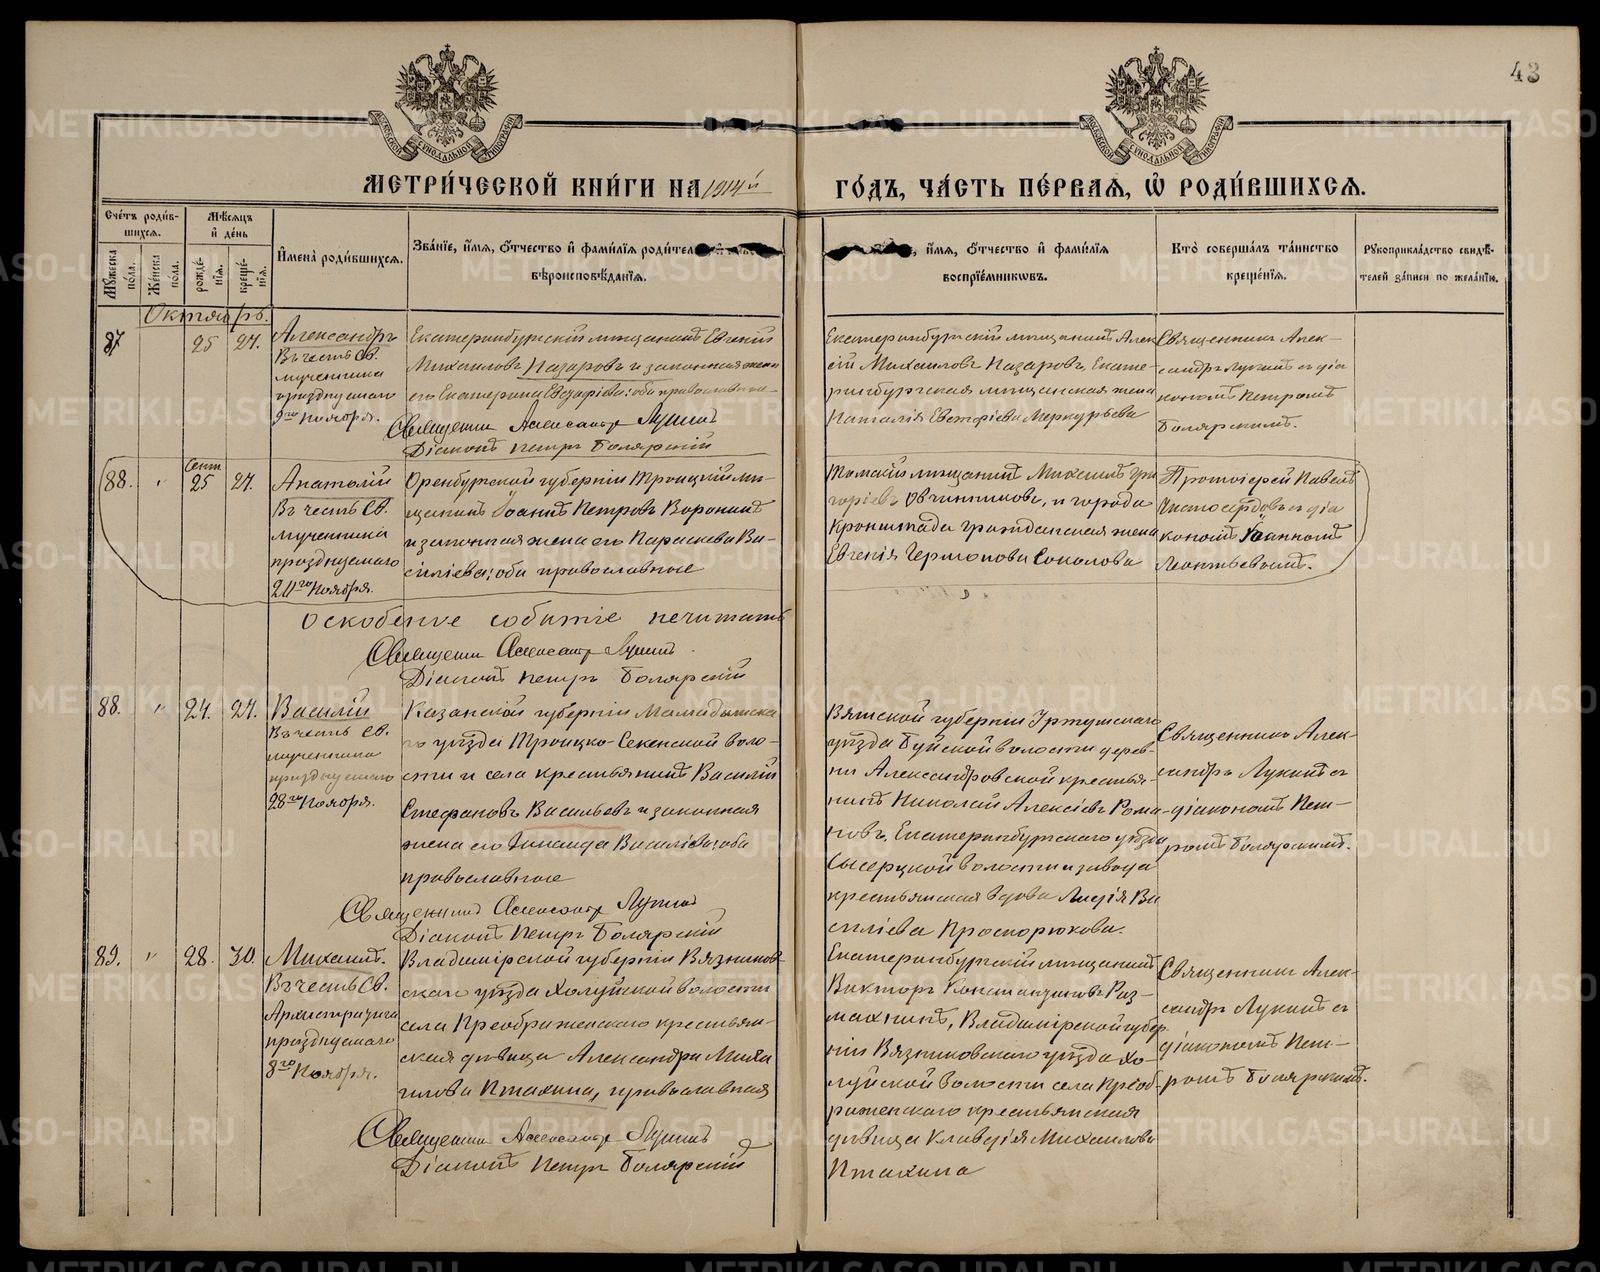 43
МЕТРИ́ЧЕСКОЙ КНИ́ГИ НА 1914 й ГО́ДЪ, ЧА́СТЬ ПЕ́РВАЯ, Ѡ҆ РОДИ́ВШИХСЯ.
Сче́тъ роди́в-
шихся.
Мꙋ́жеска по́ла.
Же́нска по́ла.
Мѣ́сяцъ
и҆ де́нь
рожде́-
нїя.
креще́-
нїя.
И҆мена̀ роди́вшихся.
Зва́нїе, и҆́мя, ѻ҆́тчество и҆ фами́лїя родител
вѣроисповѣ́данїя.
и҆́мя, ѻ҆́тчество и҆ фами́лїя
воспрїе́мниковъ.
Кто̀ соверша́лъ та́инство
креще́нїя.
Рꙋкоприкла́дство свидѣ́-
телей за́писи по жела́нїю.
Октябрь.
87
25
27.
Александръ
Въ честь Св.
мученика
празднуемаго
9го Ноября.
Екатеринбургскій мѣщанинъ Евгеній
Михаиловъ Назаровъ и законная жена
его Екатерина: оба православные
Священникъ Александръ Лукинъ
Діаконъ Петръ Болярскій
Екатеринбургскій мѣщанинъ Алек
сій Михаиловъ Назаровъ, Екате-
ринбургская мѣщанская жена
Наталія Евстафіева Меркурьева
Священникъ Алек-
сандръ Лукинъ съ діа
кономъ Петромъ
Болярскимъ.
88.
"
Сент.
25
27.
Анатолій
Въ честь Св.
мученика
празднуемаго
20го Ноября.
Оренбургской губерніи Троицкій мѣ-
щанинъ Іоаннъ Петровъ Воронинъ
и законная жена его Параскева Ва-
силіева: оба православные
Томскій мѣщанинъ Михаилъ Гри
горіевъ Овчинниковъ, и города
Кронштада гражданская жена
Евгенія Гермонова Соколова
Протоіерей Павелъ
Чистосердовъ съ діа
кономъ Іоанномъ
Леонтьевымъ.
Оскобленое событіе нечитать
Священникъ Александръ Лукинъ.
Діаконъ Петръ Болярскій
88.
"
24.
27.
Василій
Въ честь Св.
мученика
празднуемаго
28го Ноября.
Казанской губерніи Мамадышска
го уѣзда Троицко-Секенской воло-
сти и села крестьянинъ Василій
Стефановъ Васильевъ и законная
жена его Зинаида Василіева: оба
православные
Священникъ Александръ Лукинъ
Діаконъ Петръ Болярскій
Вятской губерніи Уржумскаго
уѣзда Буйской волости дерев-
ни Александровской крестья-
нинъ Николай Алексіевъ Рома-
новъ, Екатеринбургскаго уѣзда
Сысерцкой волости и завода
крестьянская вдова Лидія Ва
силіева Проскорюкова.
Священникъ Алек-
сандръ Лукинъ съ
діакономъ Пет-
ромъ Болярскимъ.
89.
"
28.
30.
Михаилъ.
Въ честь Св.
Архистратига
празднуемаго
8го Ноября.
Владимірской губерніи Вязников-
скаго уѣзда Холуйской волости
села Преображенскаго крестьян-
ская дѣвица Александра Миха
илова Птахина, православная
Священникъ Александръ Лукинъ
Діаконъ Петръ Болярскій
Екатеринбургскій мѣщанинъ
Викторъ Константиновъ Раз-
махнинъ, Владимірской губер
ніи Вязниковскаго уѣзда Хо-
луйской волости села Преоб-
раженскаго крестьянская
дѣвица Клавдія Михаилова
Птахина
Священникъ Алек-
сандръ Лукинъ съ
діакономъ Пет-
ромъ Болярскимъ.
METRIKI.GASO-URAL.RU